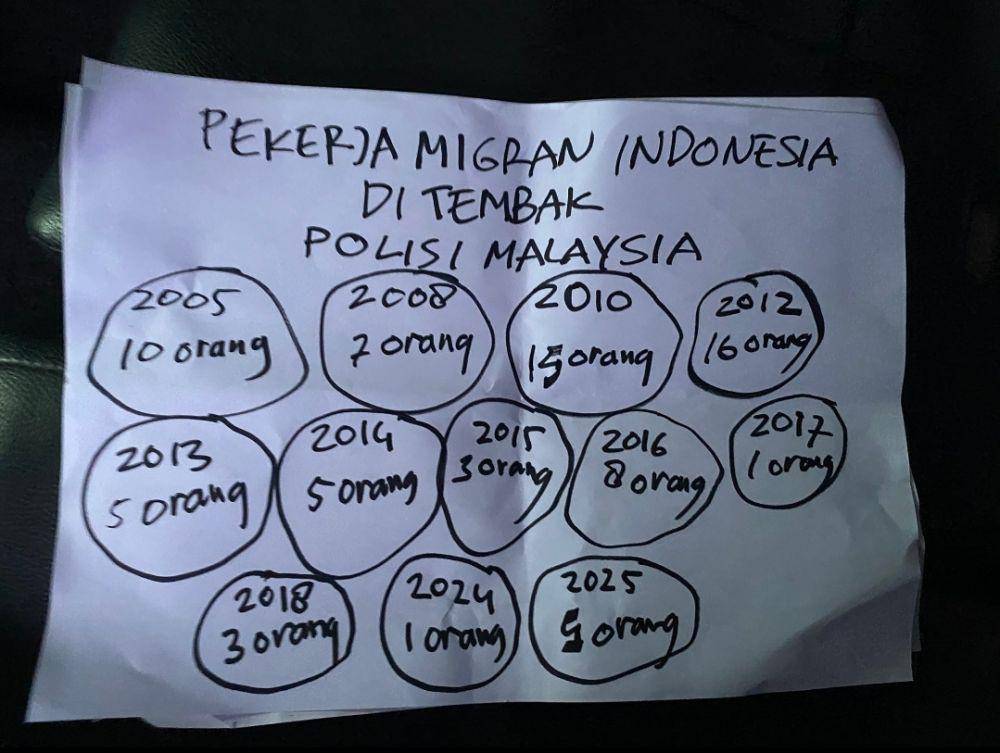 PEKERJA MIGRAN INDONESIA
DI TEMBAK
POLISI MALAYSIA
2005
10 orang
2008
7 orang
2010
15 orang
2012
16 orang
2013
5 orang
2014
5 orang
2015
3 orang
2016
8 orang
2017
1 orang
2018
3 orang
2024
1 orang
2025
5 orang